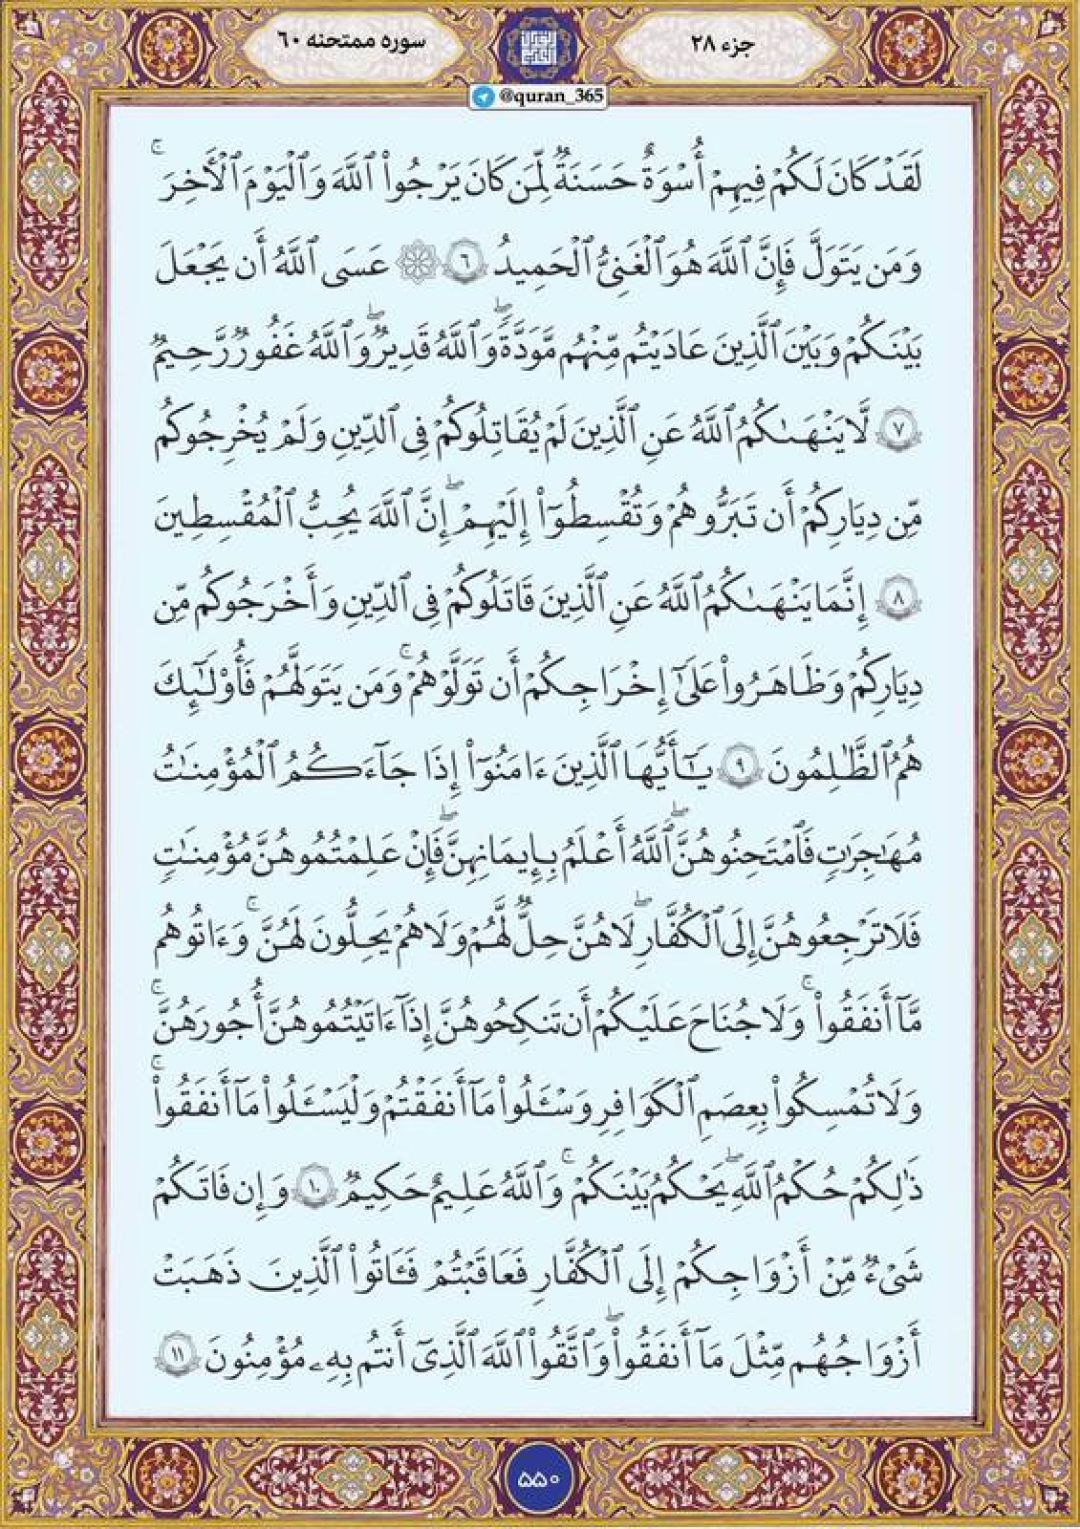 جزء ۲۸
سوره ممتحنه ۶۰
@quran_365
لَقَدْ كَانَ لَكُمْ فِيهِمْ أُسْوَةٌ حَسَنَةٌ لِّمَن كَانَ يَرْجُوا۟ ٱللَّهَ وَٱلْيَوْمَ ٱلْـَٔاخِرَ ۚ
وَمَن يَتَوَلَّ فَإِنَّ ٱللَّهَ هُوَ ٱلْغَنِىُّ ٱلْحَمِيدُ ٦ ۞ عَسَى ٱللَّهُ أَن يَجْعَلَ
بَيْنَكُمْ وَبَيْنَ ٱلَّذِينَ عَادَيْتُم مِّنْهُم مَّوَدَّةً ۚ وَٱللَّهُ قَدِيرٌ ۚ وَٱللَّهُ غَفُورٌ رَّحِيمٌ
٧ لَّا يَنْهَىٰكُمُ ٱللَّهُ عَنِ ٱلَّذِينَ لَمْ يُقَاتِلُوكُمْ فِى ٱلدِّينِ وَلَمْ يُخْرِجُوكُم
مِّن دِيَارِكُمْ أَن تَبَرُّوهُمْ وَتُقْسِطُوٓا۟ إِلَيْهِمْ ۚ إِنَّ ٱللَّهَ يُحِبُّ ٱلْمُقْسِطِينَ
٨ إِنَّمَا يَنْهَىٰكُمُ ٱللَّهُ عَنِ ٱلَّذِينَ قَاتَلُوكُمْ فِى ٱلدِّينِ وَأَخْرَجُوكُم مِّن
دِيَارِكُمْ وَظَاهَرُوا۟ عَلَىٰٓ إِخْرَاجِكُمْ أَن تَوَلَّوْهُمْ ۚ وَمَن يَتَوَلَّهُمْ فَأُو۟لَـٰٓئِكَ
هُمُ ٱلظَّـٰلِمُونَ ٩ يَـٰٓأَيُّهَا ٱلَّذِينَ ءَامَنُوٓا۟ إِذَا جَآءَكُمُ ٱلْمُؤْمِنَـٰتُ
مُهَـٰجِرَٰتٍ فَٱمْتَحِنُوهُنَّ ۖ ٱللَّهُ أَعْلَمُ بِإِيمَـٰنِهِنَّ ۖ فَإِنْ عَلِمْتُمُوهُنَّ مُؤْمِنَـٰتٍ
فَلَا تَرْجِعُوهُنَّ إِلَى ٱلْكُفَّارِ ۖ لَا هُنَّ حِلٌّ لَّهُمْ وَلَا هُمْ يَحِلُّونَ لَهُنَّ ۖ وَءَاتُوهُم
مَّآ أَنفَقُوا۟ ۚ وَلَا جُنَاحَ عَلَيْكُمْ أَن تَنكِحُوهُنَّ إِذَآ ءَاتَيْتُمُوهُنَّ أُجُورَهُنَّ ۚ
وَلَا تُمْسِكُوا۟ بِعِصَمِ ٱلْكَوَافِرِ وَسْـَٔلُوا۟ مَآ أَنفَقْتُمْ وَلْيَسْـَٔلُوا۟ مَآ أَنفَقُوا۟ ۚ
ذَٰلِكُمْ حُكْمُ ٱللَّهِ ۖ يَحْكُمُ بَيْنَكُمْ ۚ وَٱللَّهُ عَلِيمٌ حَكِيمٌ ١٠ وَإِن فَاتَكُمْ
شَىْءٌ مِّنْ أَزْوَٰجِكُمْ إِلَى ٱلْكُفَّارِ فَعَاقَبْتُمْ فَـَٔاتُوا۟ ٱلَّذِينَ ذَهَبَتْ
أَزْوَٰجُهُم مِّثْلَ مَآ أَنفَقُوا۟ ۚ وَٱتَّقُوا۟ ٱللَّهَ ٱلَّذِىٓ أَنتُم بِهِۦ مُؤْمِنُونَ ١١
۵۵۰